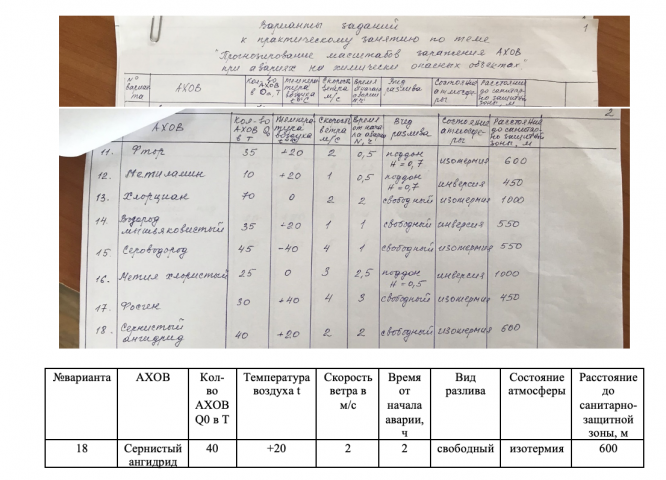 Варианты заданий
1
к практическому занятию по теме
"Прогнозирование масштабов заражения АХОВ
при авариях на химически опасных объектах"
№ варианта АХОВ Кол-во АХОВ Q₀, Т Температура воздуха t°C Скорость ветра м/с Время Вид разлива Состояние атмосферы Расстояние до санитарно защитной зоны, м
2
АХОВ Кол-во АХОВ Q в Т Температура воздуха Скорость ветра м/с Время от начала N, ч Вид разлива Состояние атмосферы Расстояние до санитарно-защитной зоны, м
11. Фтор 35 +20 2 0,5 поддон H=0,7 изотермия 600
12. Метиламин 10 +20 1 0,5 поддон H=0,7 инверсия 450
13. Хлорциан 70 0 2 2 свободный изотермия 1000
14. Водород мышьяковистый 35 +20 1 1 свободный инверсия 550
15 Сероводород 45 -40 4 1 свободный изотермия 550
16. Метил хлористый 25 0 3 2,5 поддон H=0,5 инверсия 1000
17. Фосген 30 +40 4 3 свободный изотермия 450
18. Сернистый ангидрид 40 +20 2 2 свободный изотермия 600
№варианта АХОВ Кол-во АХОВ Q0 в Т Температура воздуха t Скорость ветра в м/с Время от начала аварии, ч Вид разлива Состояние атмосферы Расстояние до санитарно-защитной зоны, м
18 Сернистый ангидрид 40 +20 2 2 свободный изотермия 600